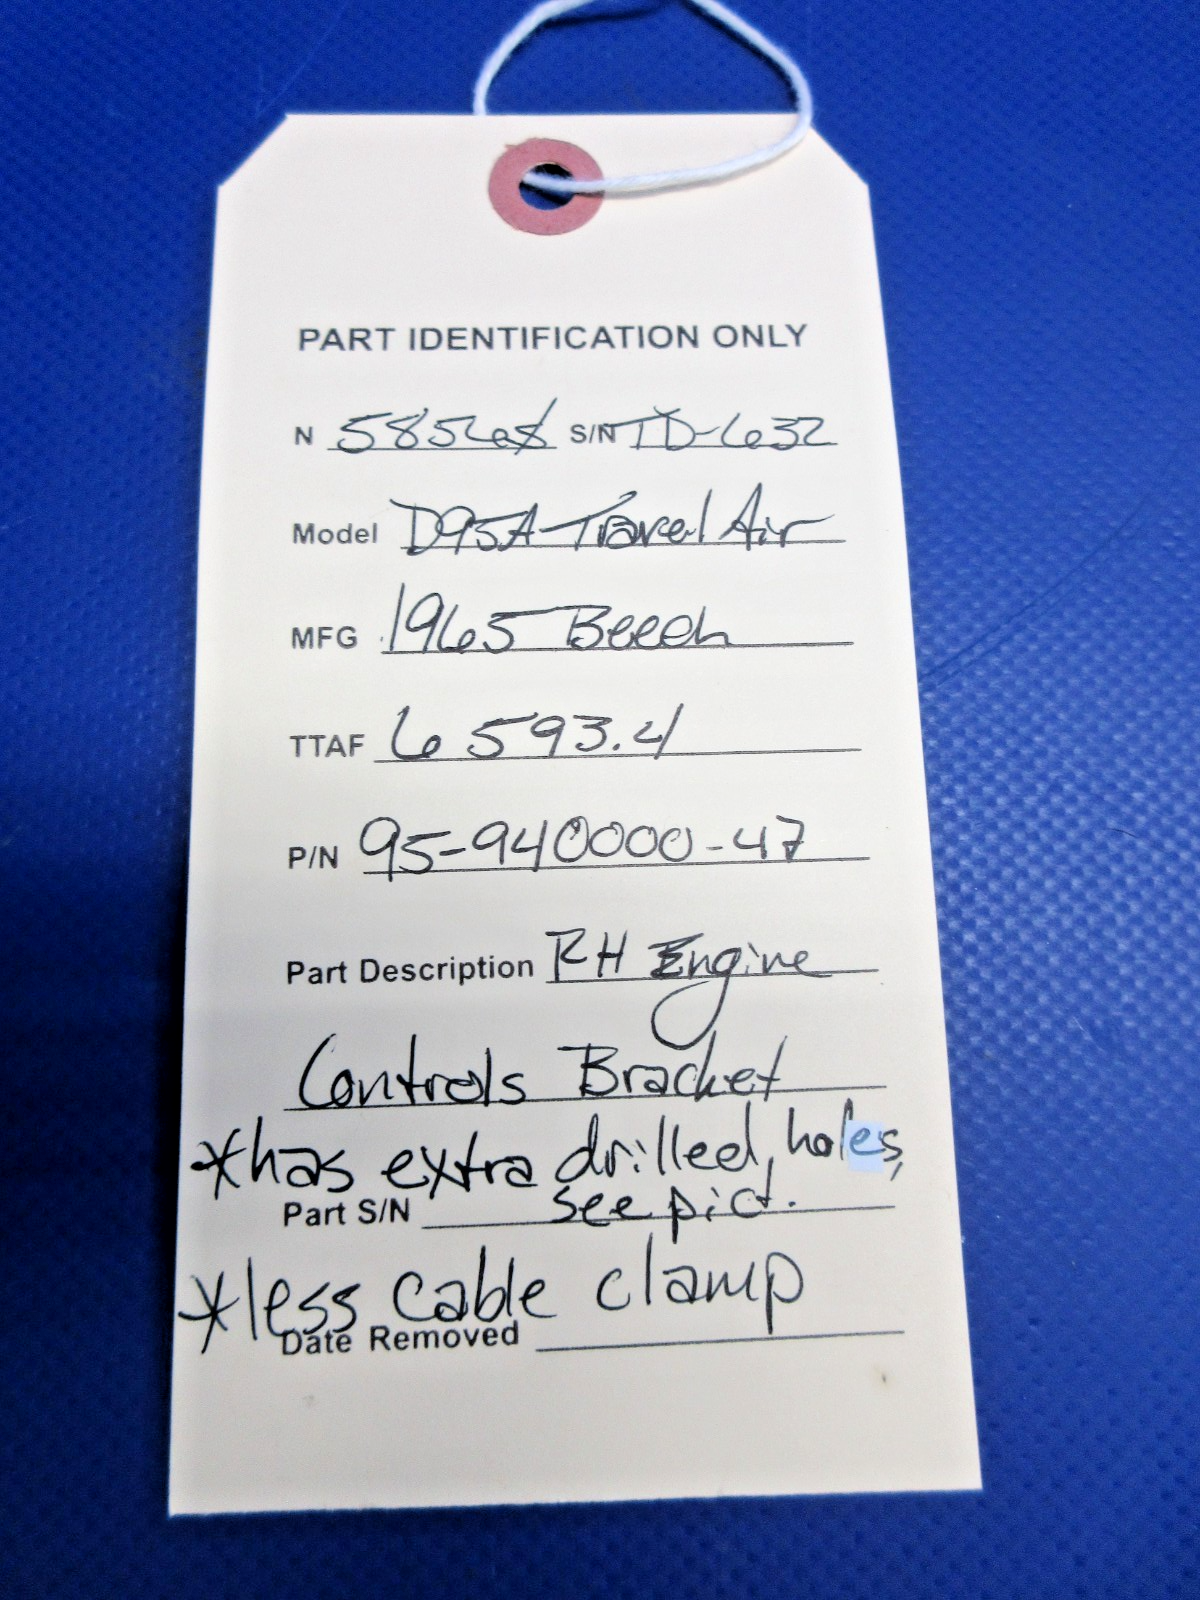 PART IDENTIFICATION ONLY
N S/N TD-632
Model D95A-Travel Air
MFG 1965 Beech
TTAF 6593.4
P/N 95-940000-47
Part Description RH Engine
Controls Bracket
*has extra drilled holes,
see pict.
Part S/N
*less cable clamp
Date Removed